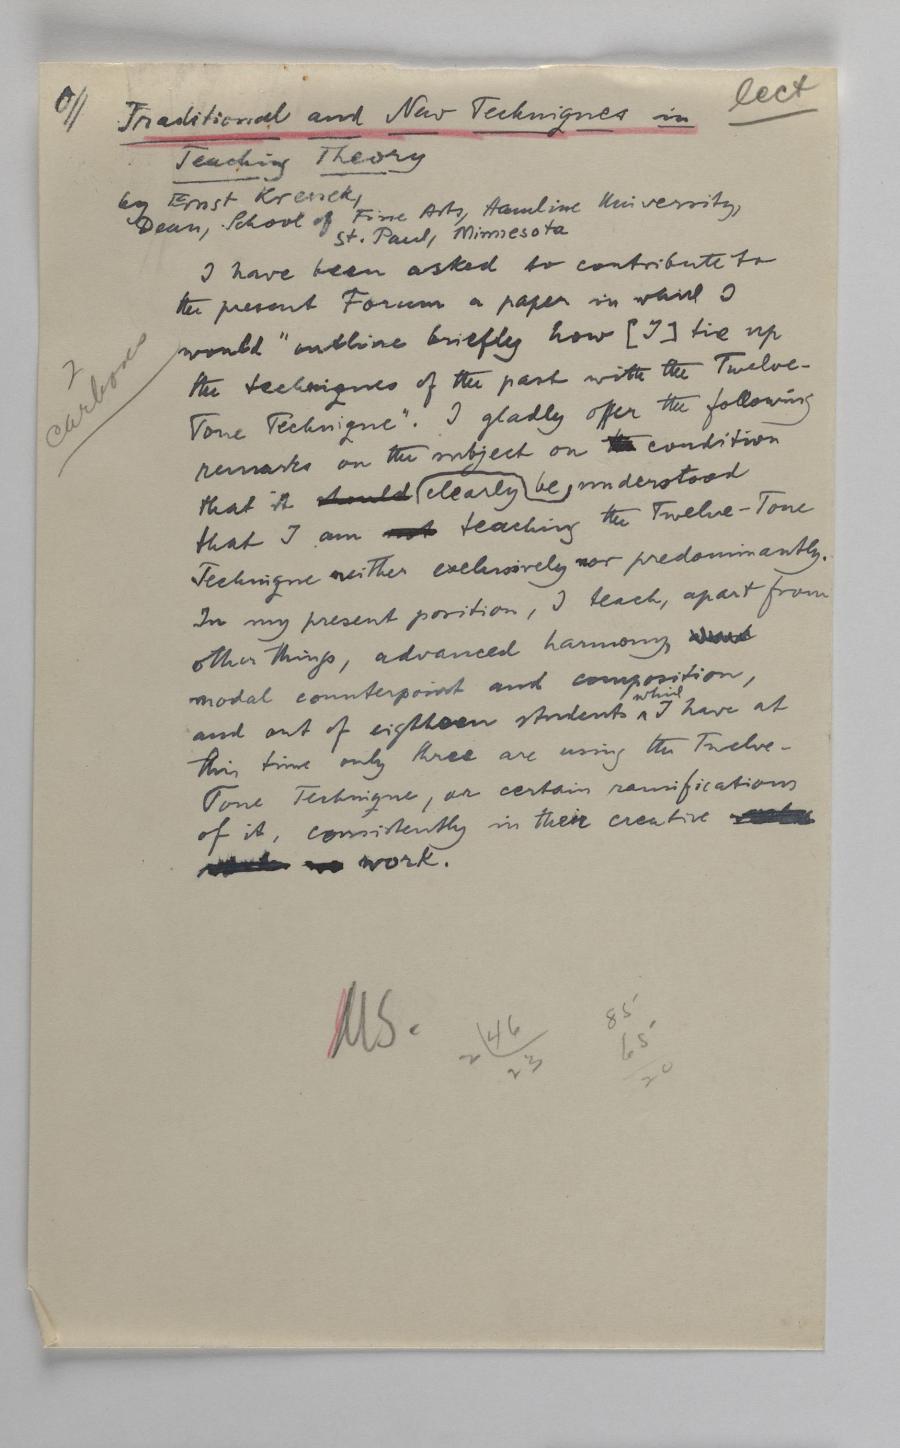 lect
Traditional and New Techniques in
Teaching Theory
by Ernst Krenek,
Dean, School of Fine Arts, Hamline University,
St. Paul, Minnesota
2
carbons
I have been asked to contribute to
the present Forum a paper in which I
would "outline briefly how [I] tie up
the techniques of the past with the Twelve-
Tone Technique". I gladly offer the following
remarks on the subject on the condition
that it should clearly be understood
that I am not teaching the Twelve-Tone
Technique neither exclusively nor predominantly.
In my present position, I teach, apart from
other things, advanced harmony,
modal counterpoint and composition,
and out of eighteen students which I have at
this time only three are using the Twelve-
Tone Technique, or certain ramifications
of it, consistently in their creative
work.
MS.
2 46
23
85
65
20